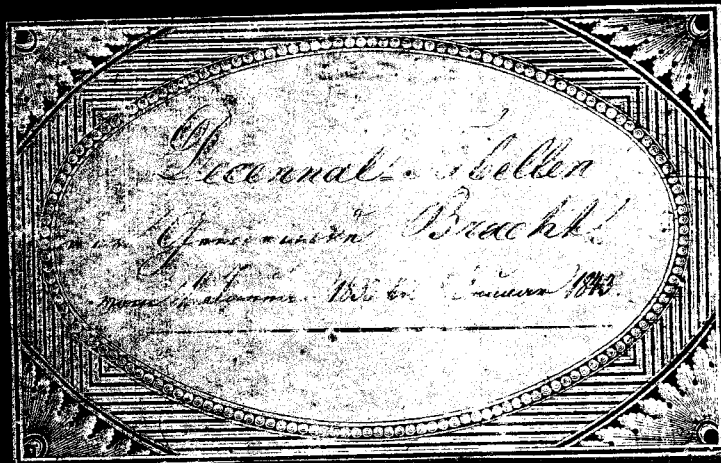 Decennal-Tabellen
der Gemeinde Bracht
vom Januar 183 bis Januar 1843.